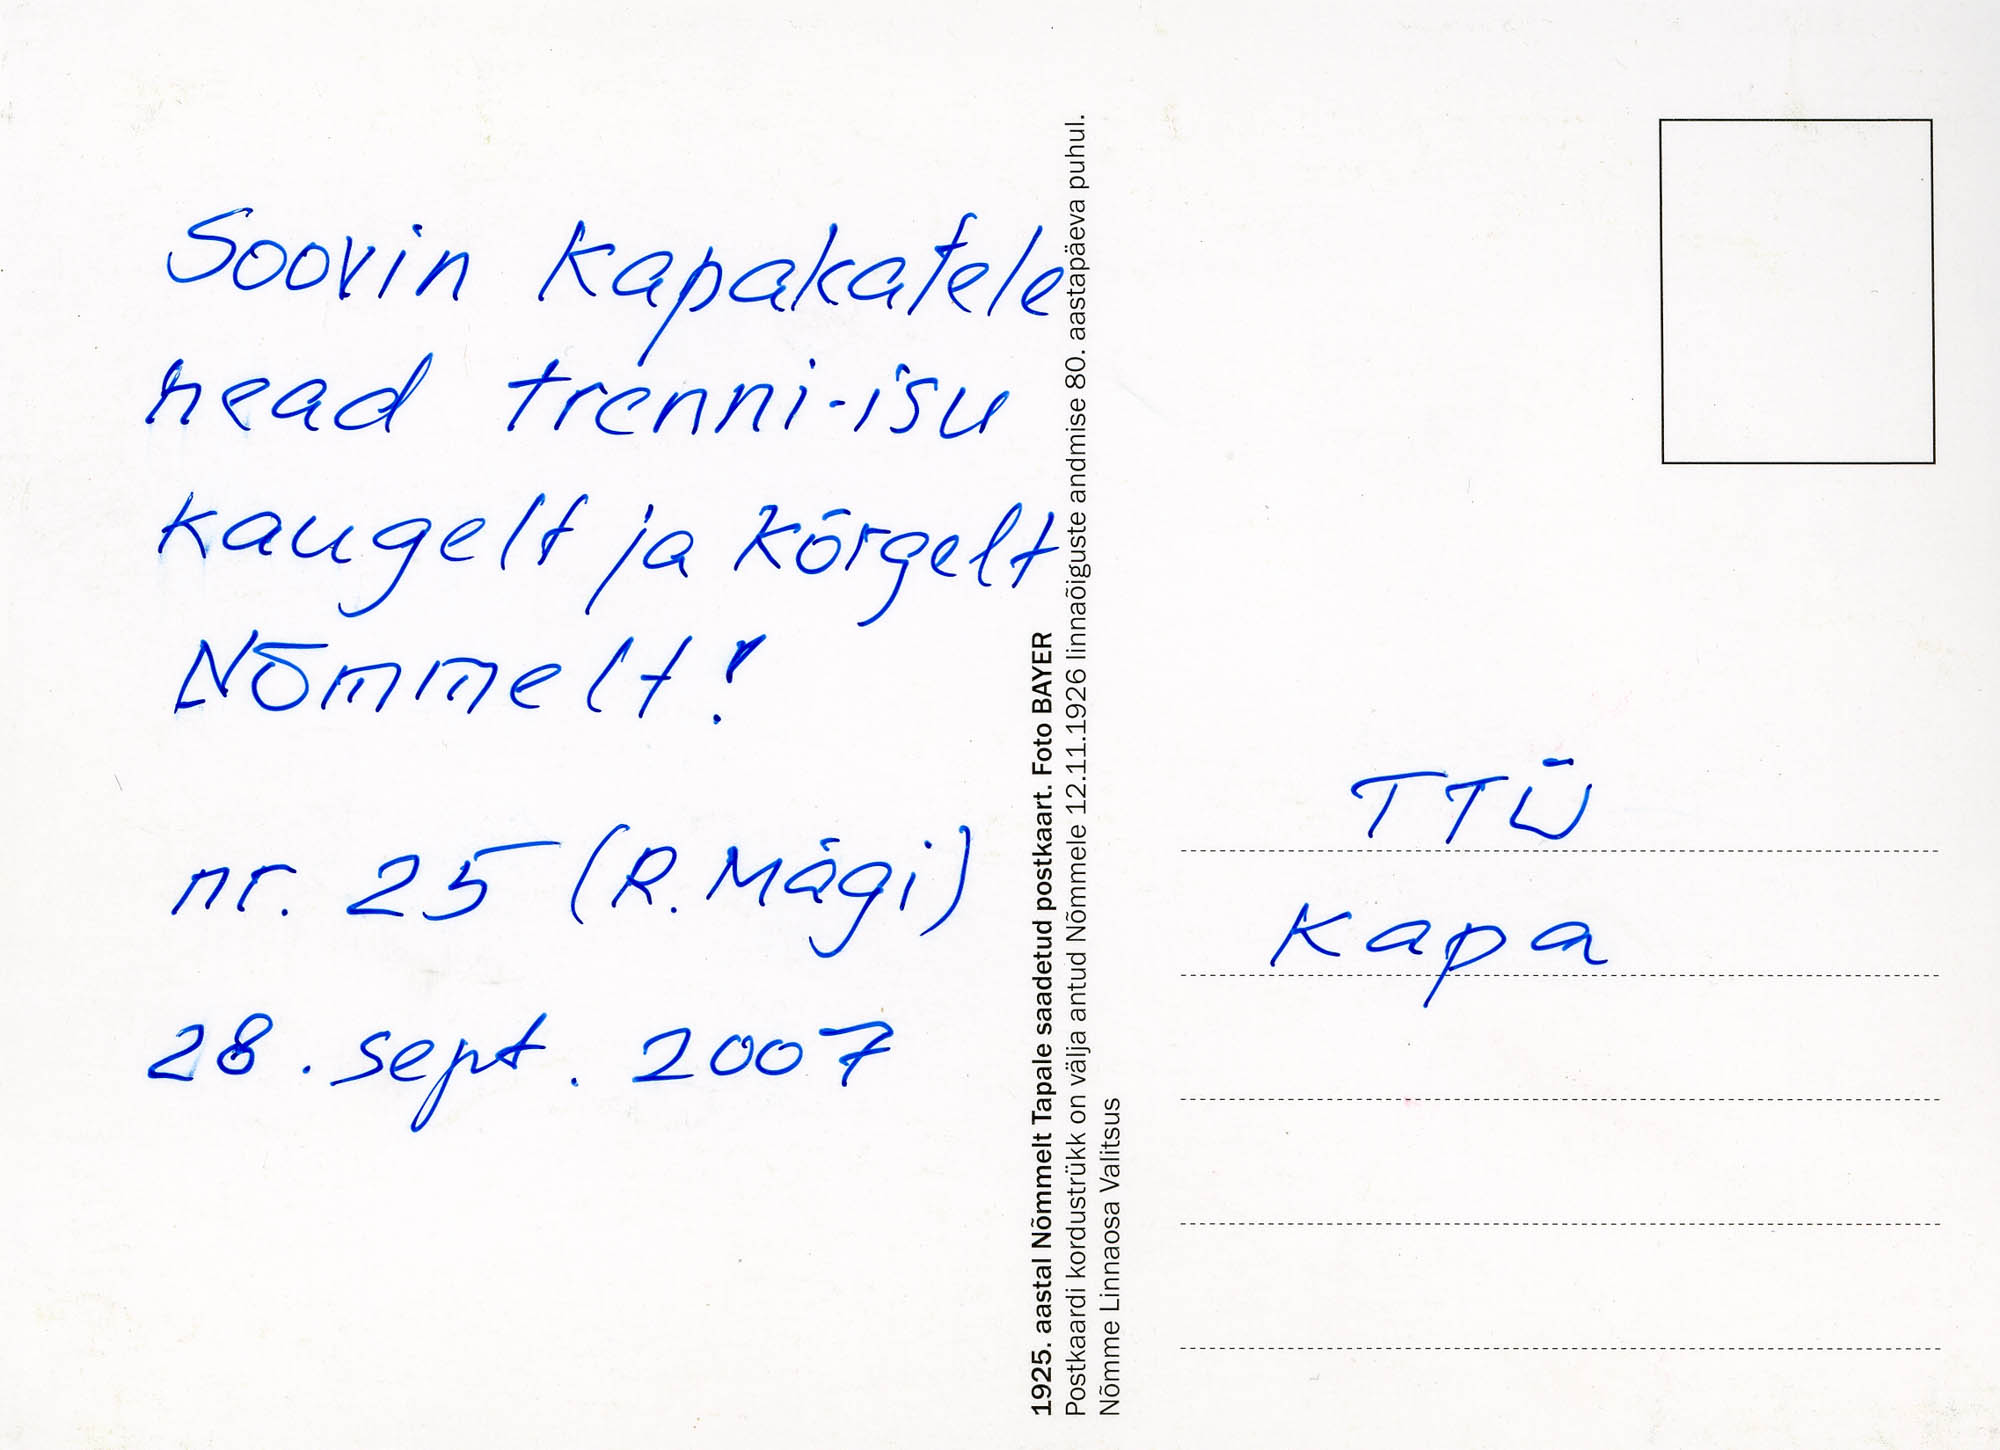 Soovin kapakatele
head trenni-isu
kaugelt ja kõrgelt
Nõmmelt!
nr. 25 (R. Mägi)
28. sept. 2007
1925. aastal Nõmmelt Tapale saadetud postkaart. Foto BAYER
Postkaardi kordustrükk on välja antud Nõmmele 12.11.1926 linnaõiguste andmise 80. aastapäeva puhul.
Nõmme Linnaosa Valitsus
TTÜ
Kapa